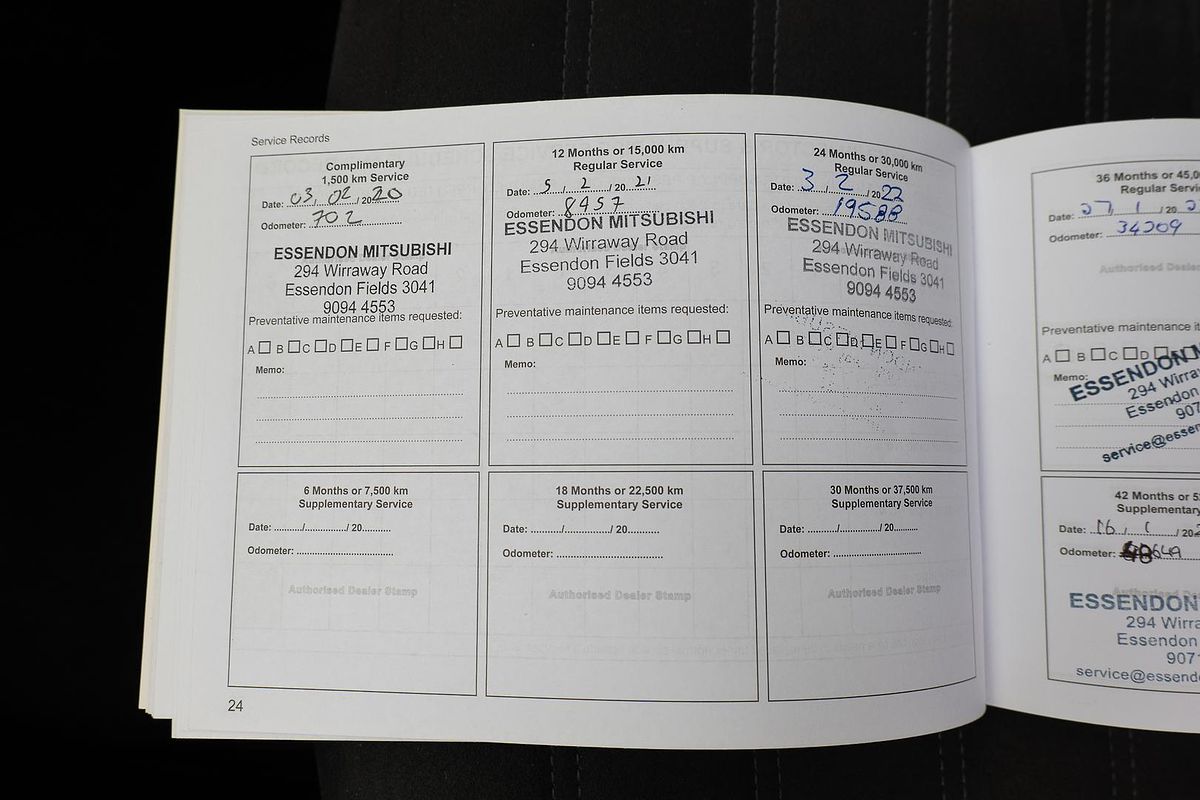 Service Records
Complimentary
1,500 km Service
Date: 03, 02, 2020
Odometer: 702
ESSENDON MITSUBISHI
294 Wirraway Road
Essendon Fields 3041
9094 4553
Preventative maintenance items requested:
A B C D E F G H
Memo:
12 Months or 15,000 km
Regular Service
Date: 5, 2 / 20 21
Odometer: 8957
ESSENDON MITSUBISHI
294 Wirraway Road
Essendon Fields 3041
9094 4553
Preventative maintenance items requested:
A B C D E F G H
Memo:
24 Months or 30,000 km
Regular Service
Date: 3, 2 / 2022
Odometer: 19588
ESSENDON MITSUBISHI
294 Wirraway Road
Essendon Fields 3041
9094 4553
Preventative maintenance items requested:
A B C D E F G H
Memo:
6 Months or 7,500 km
Supplementary Service
Date: ........../................/ 20...........
Odometer: ...................................
Authorised Dealer Stamp
18 Months or 22,500 km
Supplementary Service
Date: ........../................/ 20...........
Odometer: ...................................
Authorised Dealer Stamp
30 Months or 37,500 km
Supplementary Service
Date: ........../................/ 20...........
Odometer: ...................................
Authorised Dealer Stamp
24
36 Months or 45,0
Regular Servi
Date: 27, 1 / 20 2
Odometer: 34209
Authorised Dealer
Preventative maintenance it
A B C D
Memo:
ESSENDON M
294 Wirra
Essendon
907
service@essen
42 Months or 5
Supplementary
Date: 16, 1 / 202
Odometer: 
ESSENDON
294 Wirra
Essendon
907
service@essend